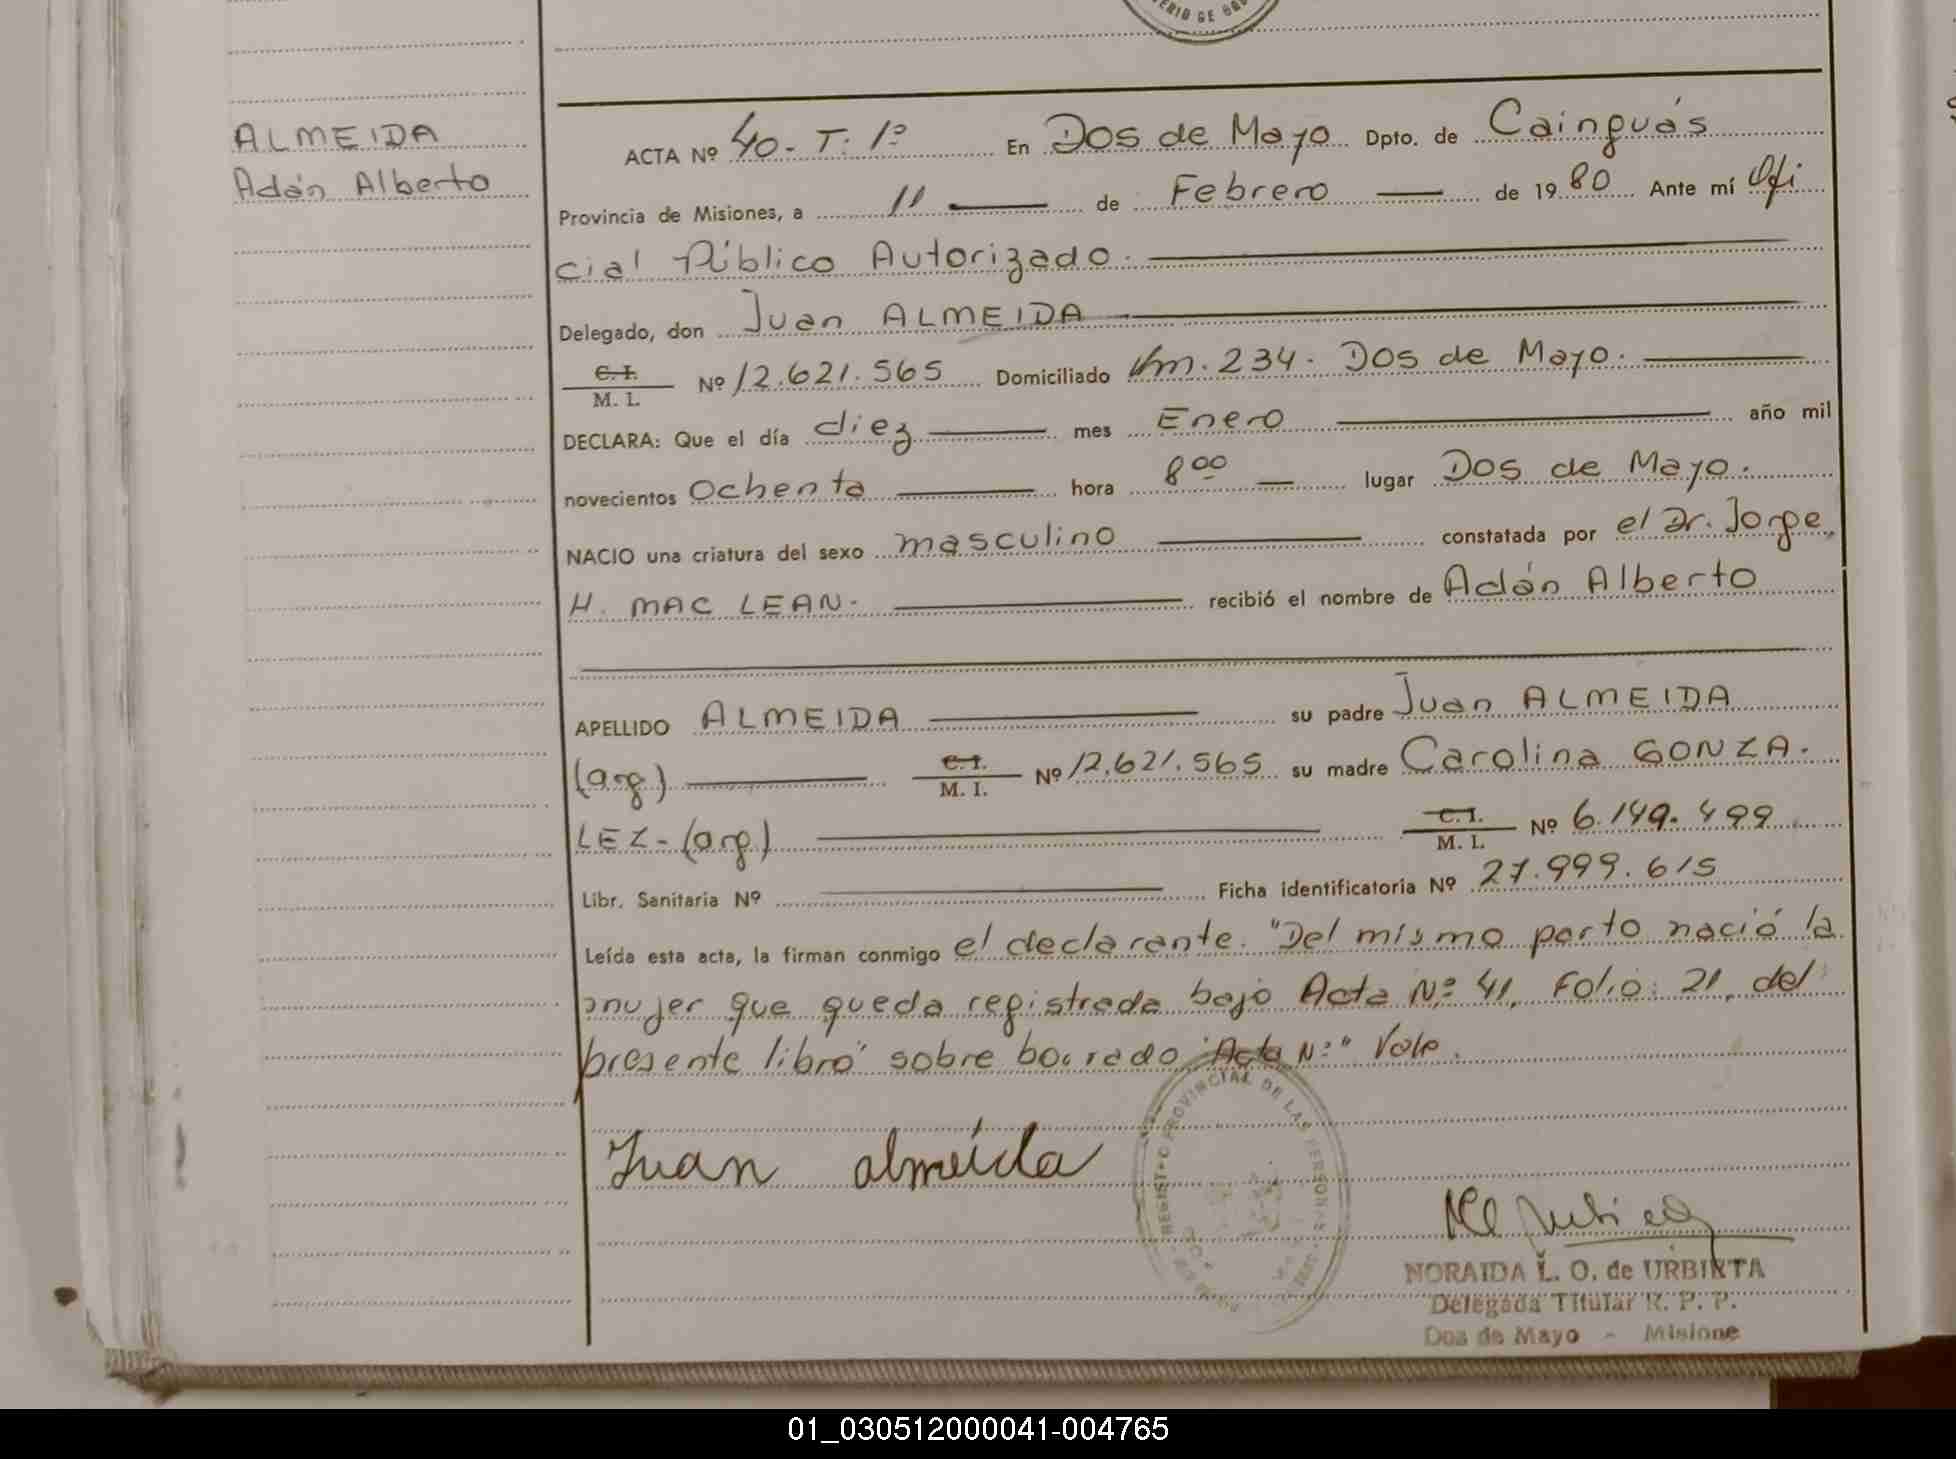 ERIO DE GO
ALMEIDA
Adán Alberto
ACTA Nº 40. T. 1º En Dos de Mayo Dpto. de Cainguás
Provincia de Misiones, a 11 de Febrero de 1980 Ante mí Ofi
cial Público Autorizado.
Delegado, don Juan ALMEIDA
C. I.
M. I. Nº 12.621.565 Domiciliado Km. 234. Dos de Mayo.
DECLARA: Que el día diez mes Enero año mil
novecientos Ochenta hora 8 00 lugar Dos de Mayo.
NACIO una criatura del sexo masculino constatada por el Dr. Jorge
H. MAC LEAN. recibió el nombre de Adán Alberto
APELLIDO ALMEIDA su padre Juan ALMEIDA
(arg) C. I. M. I. Nº 12.621.565 su madre Carolina GONZA.
LEZ - (arg) C. I. M. I. Nº 6.149.499
Libr. Sanitaria Nº Ficha identificatoria Nº 27.999.615
Leída esta acta, la firman conmigo el declarante. "Del mismo parto nació la
mujer que queda registrada bajo Acta Nº 41, Folio: 21, del
presente libro" sobre borrado "Acta Nº" Vale.
REGISTRO PROVINCIAL DE LAS PERSONAS
Juan almeida
NORAIDA L. O. de URBIETA
Delegada Titular R. P. P.
Dos de Mayo - Misione
01_030512000041-004765